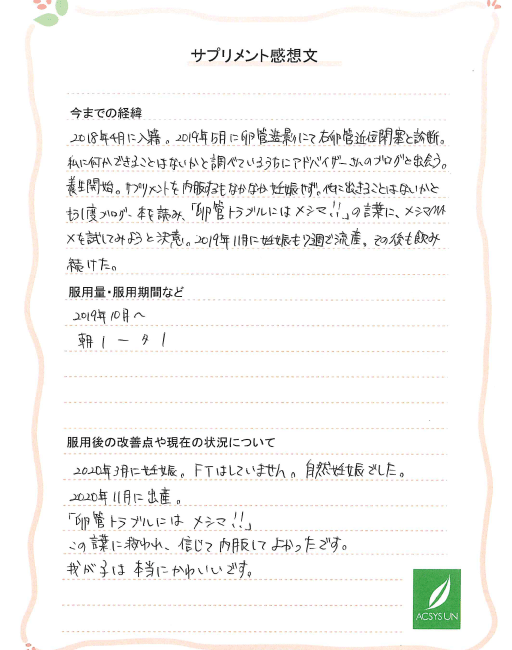 サプリメント感想文
今までの経緯
2018年4月に入籍。2019年5月に卵管造影にて右卵管近位閉塞と診断。
私に何かできることはないかと調べているうちにアドバイザーさんのブログと出会う。
養生開始。サプリメントを内服するもなかなか妊娠せず。他に出来ることはないかと
もう1度ブログ、本を読み、「卵管トラブルにはメシマ!!」の言葉に、メシマ
を試してみようと決意。2019年11月に妊娠も7週で流産。その後も飲み
続けた。
服用量・服用期間など
2019年10月〜
朝1 ー 夕1
服用後の改善点や現在の状況について
2020年3月に妊娠。FTはしていません。自然妊娠でした。
2020年11月に出産。
「卵管トラブルには メシマ!!」
この言葉に救われ、信じて内服してよかったです。
我が子は本当にかわいいです。
ACSYSUN